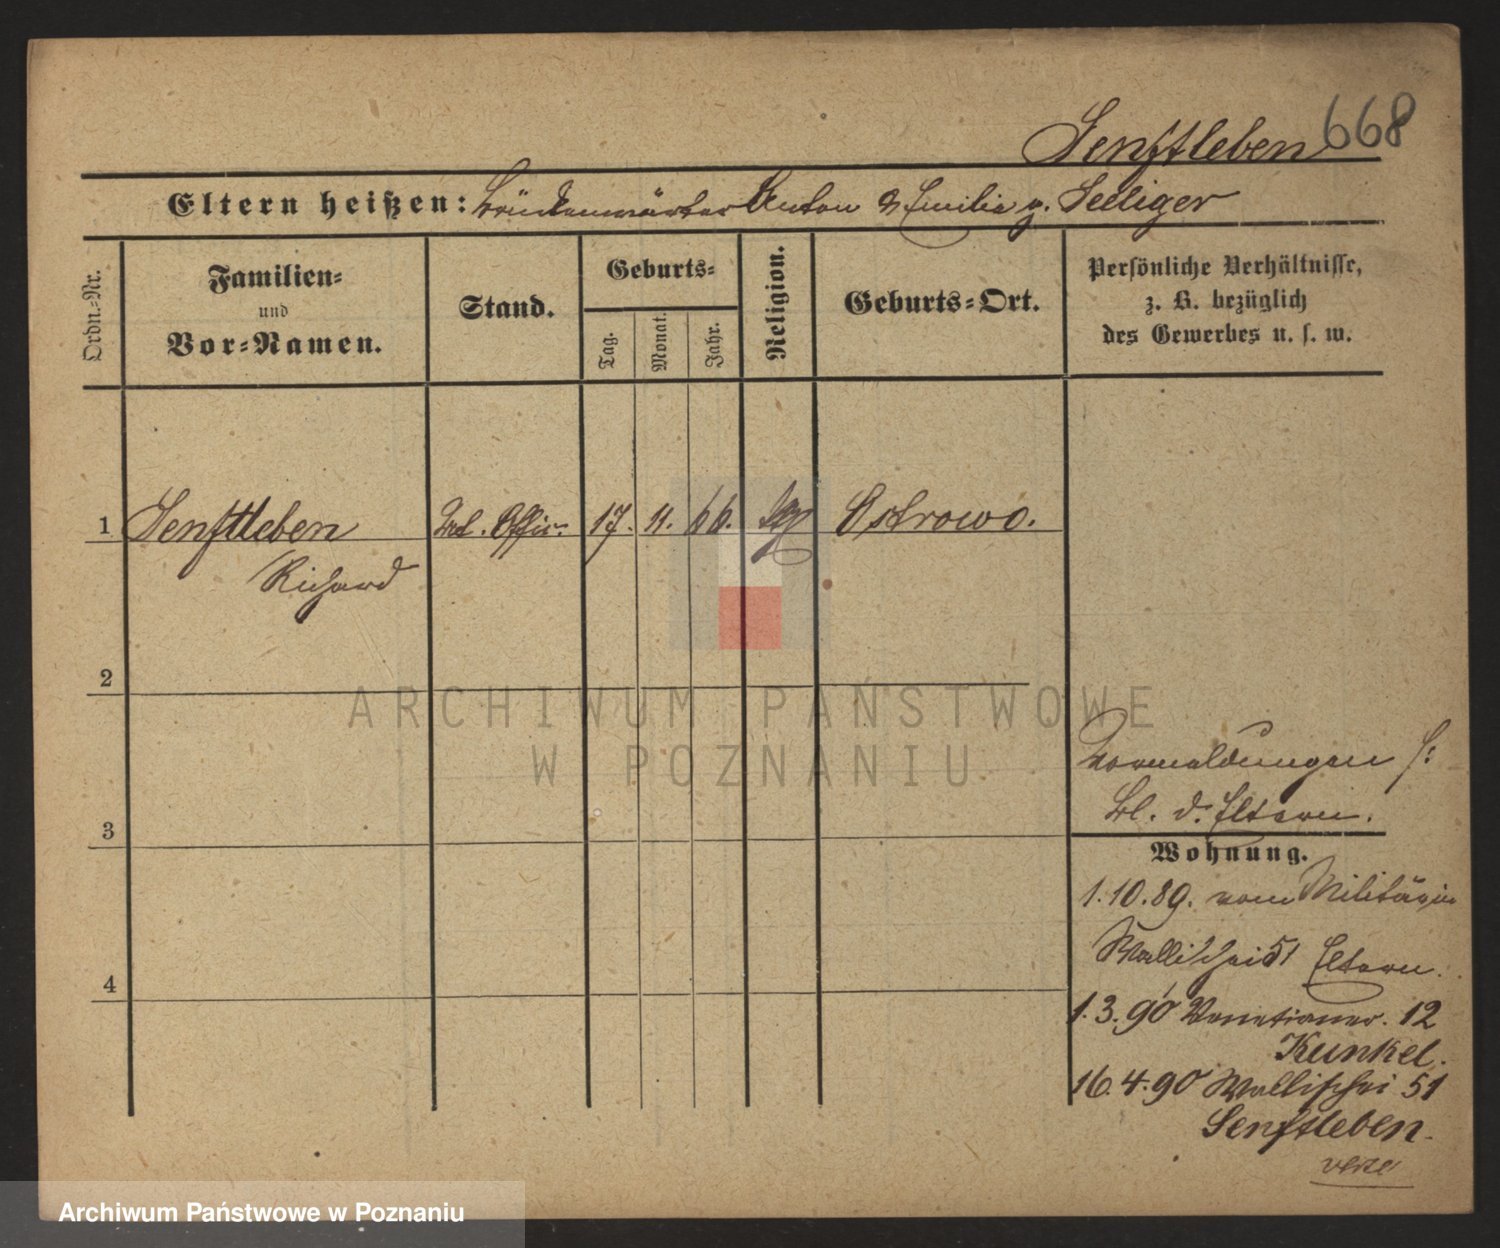 Senftleben 668
Eltern heißen: Brückenwärter Anton & Emilie g. Seeliger
Ordn.-Nr.
Familien-
und
Vor-Namen.
Stand.
Geburts-
Tag.
Monat.
Jahr.
Religion.
Geburts-Ort.
Persönliche Verhältnisse,
z. B. bezüglich
des Gewerbes u. s. w.
1 Senftleben Unt. Offiz. 17. 11. 66. Ostrowo.
Richard
2
3
4
Vormeldungen s:
Bl. d. Eltern.
Wohnung.
1.10.89. vom Militär
Wallischei 51 Eltern.
1.3.90 Venetianer. 12
Kunkel.
16.4.90 Wallischei 51
Senftleben.
ARCHIWUM PAŃSTWOWE
W POZNANIU
Archiwum Państwowe w Poznaniu